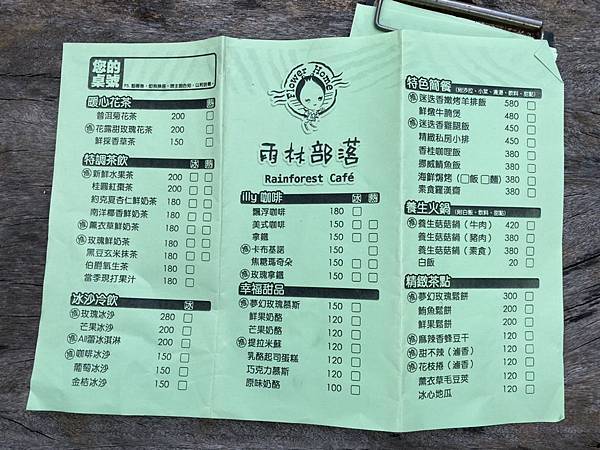 您的
桌號
暖心花茶 熱
普洱菊花茶 200
花露甜玫瑰花茶 200
鮮採香草茶 150
特調茶飲 冰 熱
新鮮水果茶 200
桂圓紅棗茶 200
約克夏杏仁鮮奶茶 180
南洋椰香鮮奶茶 180
薰衣草鮮奶茶 180
玫瑰鮮奶茶 180
黑豆玄米抹茶 180
伯爵氧生茶 180
當季現打果汁 180
冰沙冷飲 冰
玫瑰冰沙 280
芒果冰沙 200
AII蕾冰淇淋 200
咖啡冰沙 150
葡萄冰沙 150
金桔冰沙 150
Flower Home
雨林部落
Rainforest Café
illy 咖啡 冰 熱
飄浮咖啡 180
美式咖啡 150
拿鐵 150
卡布基諾 150
焦糖瑪奇朵 150
玫瑰拿鐵 150
幸福甜品
夢幻玫瑰慕斯 150
鮮果奶酪 120
芒果奶酪 120
提拉米蘇 120
乳酪起司蛋糕 120
巧克力慕斯 120
原味奶酪 100
特色簡餐 (附沙拉、小菜、濃湯、飲料、甜點)
迷迭香嫩烤羊排飯 580
鮮燉牛腱煲 480
迷迭香雞腿飯 450
精緻私房小排 450
香桂咖哩飯 380
挪威鯖魚飯 380
海鮮焗烤 (□飯 □麵) 380
素食羅漢齋 380
養生火鍋 (附白飯、飲料、甜點)
養生菇菇鍋 (牛肉) 420
養生菇菇鍋 (豬肉) 380
養生菇菇鍋 (素食) 380
白飯 20
精緻茶點
夢幻玫瑰鬆餅 300
鮪魚鬆餅 200
鮮果鬆餅 200
麻辣香蜂豆干 120
甜不辣 (滷香) 120
花枝捲 (滷香) 120
薰衣草毛豆莢 120
冰心地瓜 120